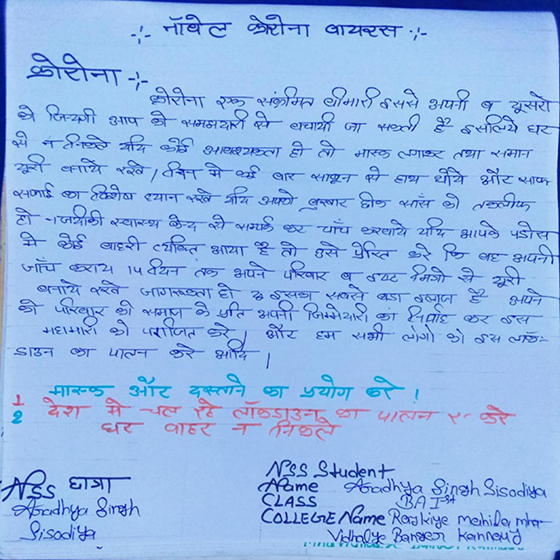 -:- नॉवेल कोरोना वायरस -:-
कोरोना -:-
कोरोना एक संक्रमित बीमारी इससे अपनी व दूसरो
की जिन्दगी आप की समझदारी से बचायी जा सकती है इसलिये घर
से न निकले यदि कोई आवश्यकता हो तो मास्क लगाकर तथा समान
दूरी बनाये रखे / दिन मे कई बार साबुन से हाथ धोये और साफ
सफाई का विशेष ध्यान रखे यदि आपको बुखार छीक साँस की तकलीफ
हो नजदीकी स्वास्थ्य केन्द्र से सम्पर्क कर जाँच करवाये यदि आपके पडोस
मे कोई बाहरी व्यक्ति आया है तो उसे प्रेरित करे कि वह अपनी
जाँच कराय 14 दिवन तक अपने परिवार व इष्ट मित्रो से दूरी
बनाये रखे जागरूकता ही इसका सबसे बडा इलाज है अपने
को परिवार को समाज के प्रति अपनी जिम्मेदारी का निर्वाह कर इस
महामारी को पराजित करे / और हम सभी लोगो को इस लॉक-
डाउन का पालन करे आदि |
1 मास्क और दस्ताने का प्रयोग करे !
2 देश मे चल रहे लॉकडाउन का पालन करे
घर बाहर न निकले
NSS छात्रा
Aradhya Singh
Sisodiya
NSS Student
Name Aradhya Singh Sisodiya
CLASS B.A Ist
COLLEGE Name Rajkiye mehila mha-
Vidhaliye Banger Kannauj